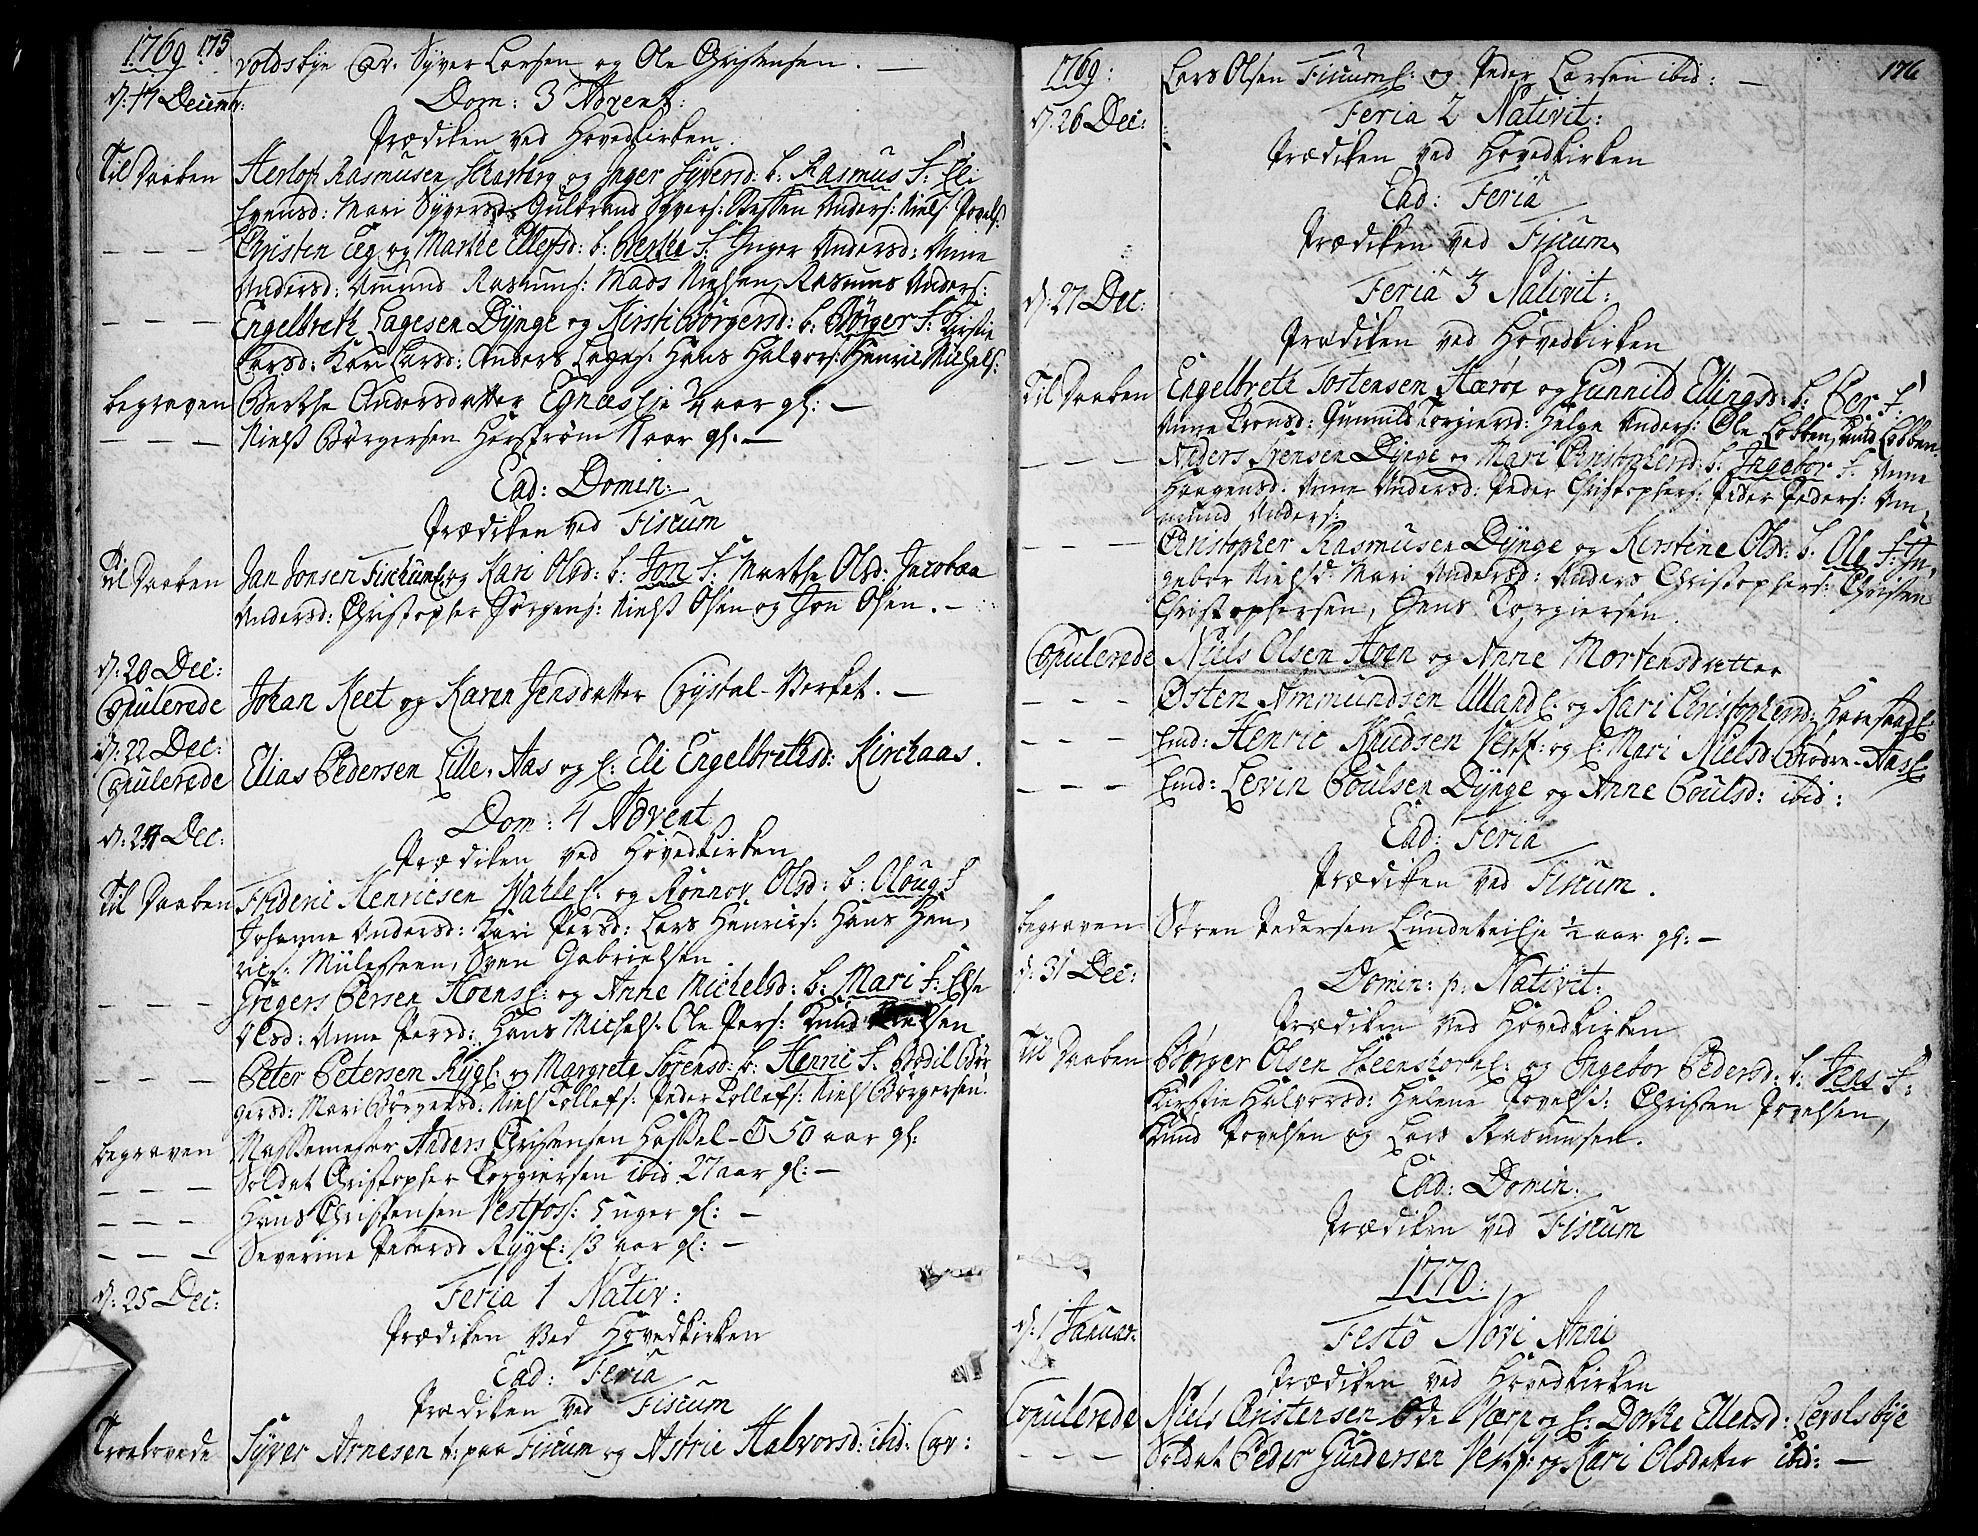 1769 175
voldsbye Cav. Syver Larsen og Ole Christensen. —
d: 17 Decembr: Dom: 3 Advent:
Prædiken ved Hovedkirken.
Til Daaben Herlof Rasmusen Skarberg og Inger Syversd: b: Rasmus F: Eli
Evensd: Mari Syversd: Gulbrand Syvers: Steffen Anders: Niels Povels:
— — — Christen Teg og Marthe Ellefsd: b: Berthe F: Inger Andersd: Anne
Andersd: Amund Rasmus: Mads Nielsen, Rasmus Anders:
— — — Engelbreth Lagesen Dynge og Kirsti Børgersd: b: Børger F: Kirstie
Larsd: Kari Larsd: Anders Lages: Hans Halvors: Henric Michels:
begraven Berthe Andersdatter Egnæseje 3/4 aar gl: —
— — — Niels Børgersen Horstrøm 11 aar gl: —
Ead: Domin:
Prædiken ved Fiscum
Til Daaben Jan Jonsen Fischume: og Kari Olsd: b: Jon F: Marthe Olsd: Jacobaa
Andersd: Christopher Jørgens: Niels Olsen og Jon Olsen. —
d: 20 Dec:
Copulerede Johan Keet og Karen Jensdatter Crystal-Verket. —
d: 22 Dec:
Copulerede Elias Pedersen Lille-Aas og E: Eli Engelbrethsd: Kirchaas.
d: 24 Dec: Dom: 4 Advent
Prædiken ved Hovedkirken
Til Daaben Frideric Henricsen Wahle E: og Rønnov Olsd: b: Oloug F
Johanne Andersd: Kari Persd: Lars Henrics: Hans Hen-
rics: Mülesteen, Sven Gabrielsen
— — — Gregers Persen Hoens E: og Anne Michelsd: b: Mari F: Else
Olsd: Anne Persd: Hans Michels: Ole Pers: Knud Nielsen
— — — Peter Petersen Ryg E: og Margrete Sørensd: b: Henric F: Bodil Bør-
gersd: Mari Børgersd: Niels Tollefs: Peder Tollefs: Niels Børgersen.
begraven Massemester Anders Christensen Hassel- 50 aar gl:
— — — Soldat Christopher Torgiersen ibid 27 aar gl: —
— — — Hans Christensen Vestfos: 5 uger gl: —
— — — Severine Petersd Ryg E: 13 aar gl: —
d: 25 Dec: Feria 1 Nativ:
Prædiken ved Hovedkirken
Ead: Feria
Prædiken ved Fiscum
Troelovede Syver Arnesen t: paa Fiscum og Astrie Halvorsd: ibid: Cav:
1769: Lars Olsen Fiscum E: og Peder Larsen ibid: — 176
d: 26 Dec: Feria 2 Nativit:
Prædiken ved Hovedkirken
Ead: Feria
Prædiken ved Fiscum
d: 27 Dec: Feria 3 Nativit:
Prædiken ved Hovedkirken
Til Daaben Engelbreth Tostensen Haroe og Gunnild Ellingsd: b: Per F:
Anne Tronsd: Gunnild Torgiersd: Helge Anders: Ole Lobben, Knud Lobben
— — — Anders Svensen Dynge og Mari Christophersd: b: Ingebor F: Anne
Haagensd: Anne Andersd: Peder Christophers: Peder Peders: Am-
mund Anders:
— — — Christopher Rasmusen Dynge og Kirstine Olsd: b: Ole F: In-
gebor Nielsd: Mari Andersd: Anders Christophers: Christen
Christophersen, Hans Torgiersen.
Copulerede Niels Olsen Hoen og Anne Mortensdatter
— — — Østen Ammundsen Ulland E: og Kari Christophersd: Harestad E:
— — — Emd: Henric Knudsen Vestf: og E: Mari Nielsd Brødre-Aas E:
— — — Emd: Levin Poulsen Dynge og Anne Poulsd: ibid:
Ead: Feria
Prædiken ved Fiscum.
begraven Søren Pedersen Lundeteigeje 1/2 aar gl: —
d: 31 Dec: Domin: p: Nativit:
Prædiken ved Hovedkirken
Til Daaben Børger Olsen Steenskor E: og Ingebor Pedersd: b: Jens F:
Kirstie Halvorsd: Helene Povelsd: Christen Povelsen,
Knud Povelsen og Lars Rasmusen.
Ead: Domin:
Prædiken ved Fiscum
1770:
d: 1 Januar: Festo Novi Anni
Prædiken ved Hovedkirken
Copulerede Niels Christensen Øde Warp og E: Dorthe Ellensd: Berols bye
— — — Soldat Peder Gundersen Vestf: og Kari Olsdatter ibid: —